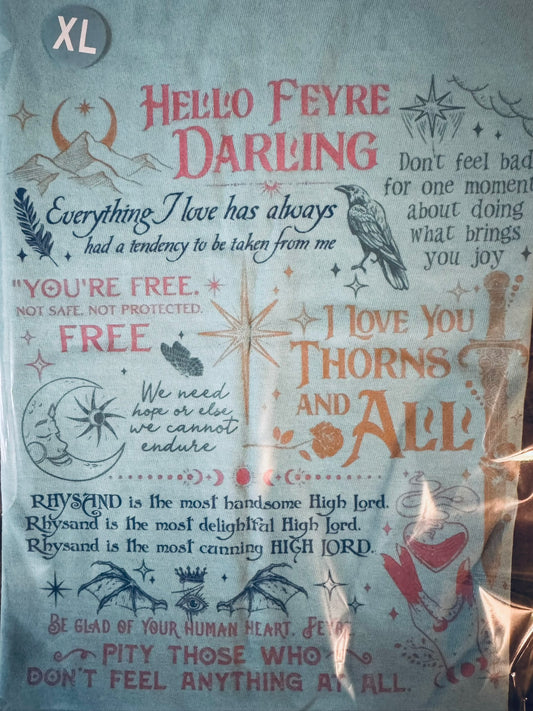 XL
HELLO FEYRE
DARLING
Don't feel bad
for one moment
about doing
what brings
you joy
Everything I love has always
had a tendency to be taken from me
"YOU'RE FREE.
NOT SAFE. NOT PROTECTED.
FREE
I LOVE YOU
THORNS
AND ALL
We need
hope or else
we cannot
endure
RHYSAND is the most handsome High Lord.
Rhysand is the most delightful High Lord.
Rhysand is the most cunning HIGH LORD.
BE GLAD OF YOUR HUMAN HEART, FEYRE.
PITY THOSE WHO
DON'T FEEL ANYTHING AT ALL.